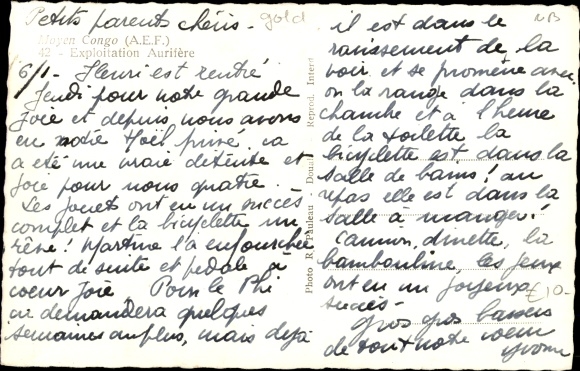 Petits parents chéris - gold
Moyen Congo (A.E.F.)
42 - Exploitation Aurifère
6/1 - Henri est rentré
Jeudi pour notre grande
joie et depuis nous avons
eu notre Noël privé. ça
a été une vraie détente et
joie pour nous quatre.
Les jouets ont eu un succès
complet et la bicyclette un
rêve! Martine l'a enfourchée
tout de suite et pédale à
coeur joie. Pour le Phi
ça demandera quelques
semaines en plus, mais déjà
Photo R. Pauleau - Douala - Reprod. Interd.
NB
il est dans le
ravissement de la
voir et se promène avec
on la range dans la
chambre et à l'heure
de la toilette la
bicyclette est dans la
salle de bains! au
repas elle est dans la
salle à manger!
Camion, dinette, la
bambouline, les jeux
ont eu un joyeux
succès -
£10-
Gros gros baisers
de tout notre coeur
Yvonne